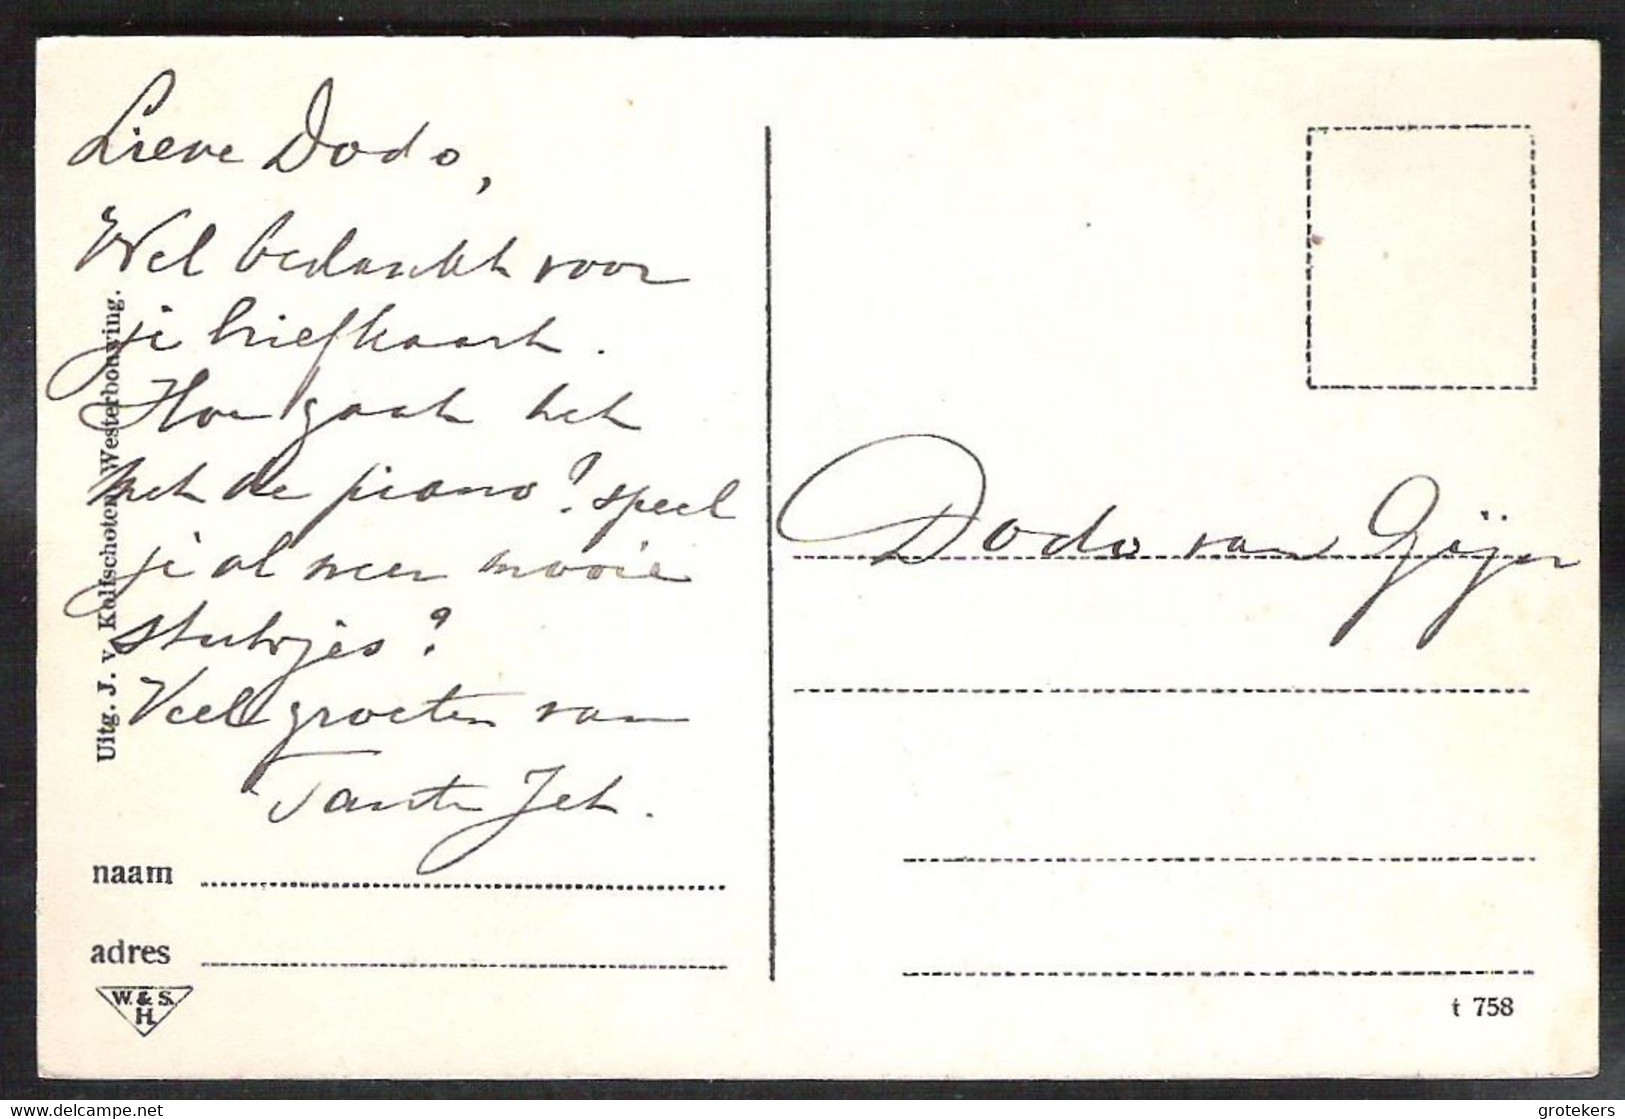 Lieve Dodo,
Wel bedankt voor
je briefkaart.
Hoe gaat het
met de piano? speel
je al weer mooie
stukjes?
Veel groeten van
Tante Jet.
Uitg. J. v. Kolfschoten, Westerbouwing.
naam
adres
W. & S.
H.
Dodo van
t 758
delcampe.net
grotekers